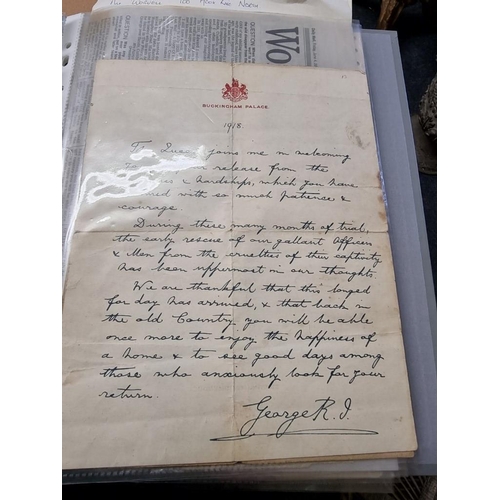 The Wolvers 100 Mine Road North
QUESTION
Wo
BUCKINGHAM PALACE
1918.
The Queen joins me in welcoming
release from the
& hardships, which you have
with so much patience &
courage.
During these many months of trial,
the early rescue of our gallant Officers
& Men from the cruelties of their captivity
has been uppermost in our thoughts.
We are thankful that this longed
for day has arrived, & that back in
the old Country you will be able
once more to enjoy the happiness of
a home & to see good days among
those who anxiously look for your
return.
George R.I.